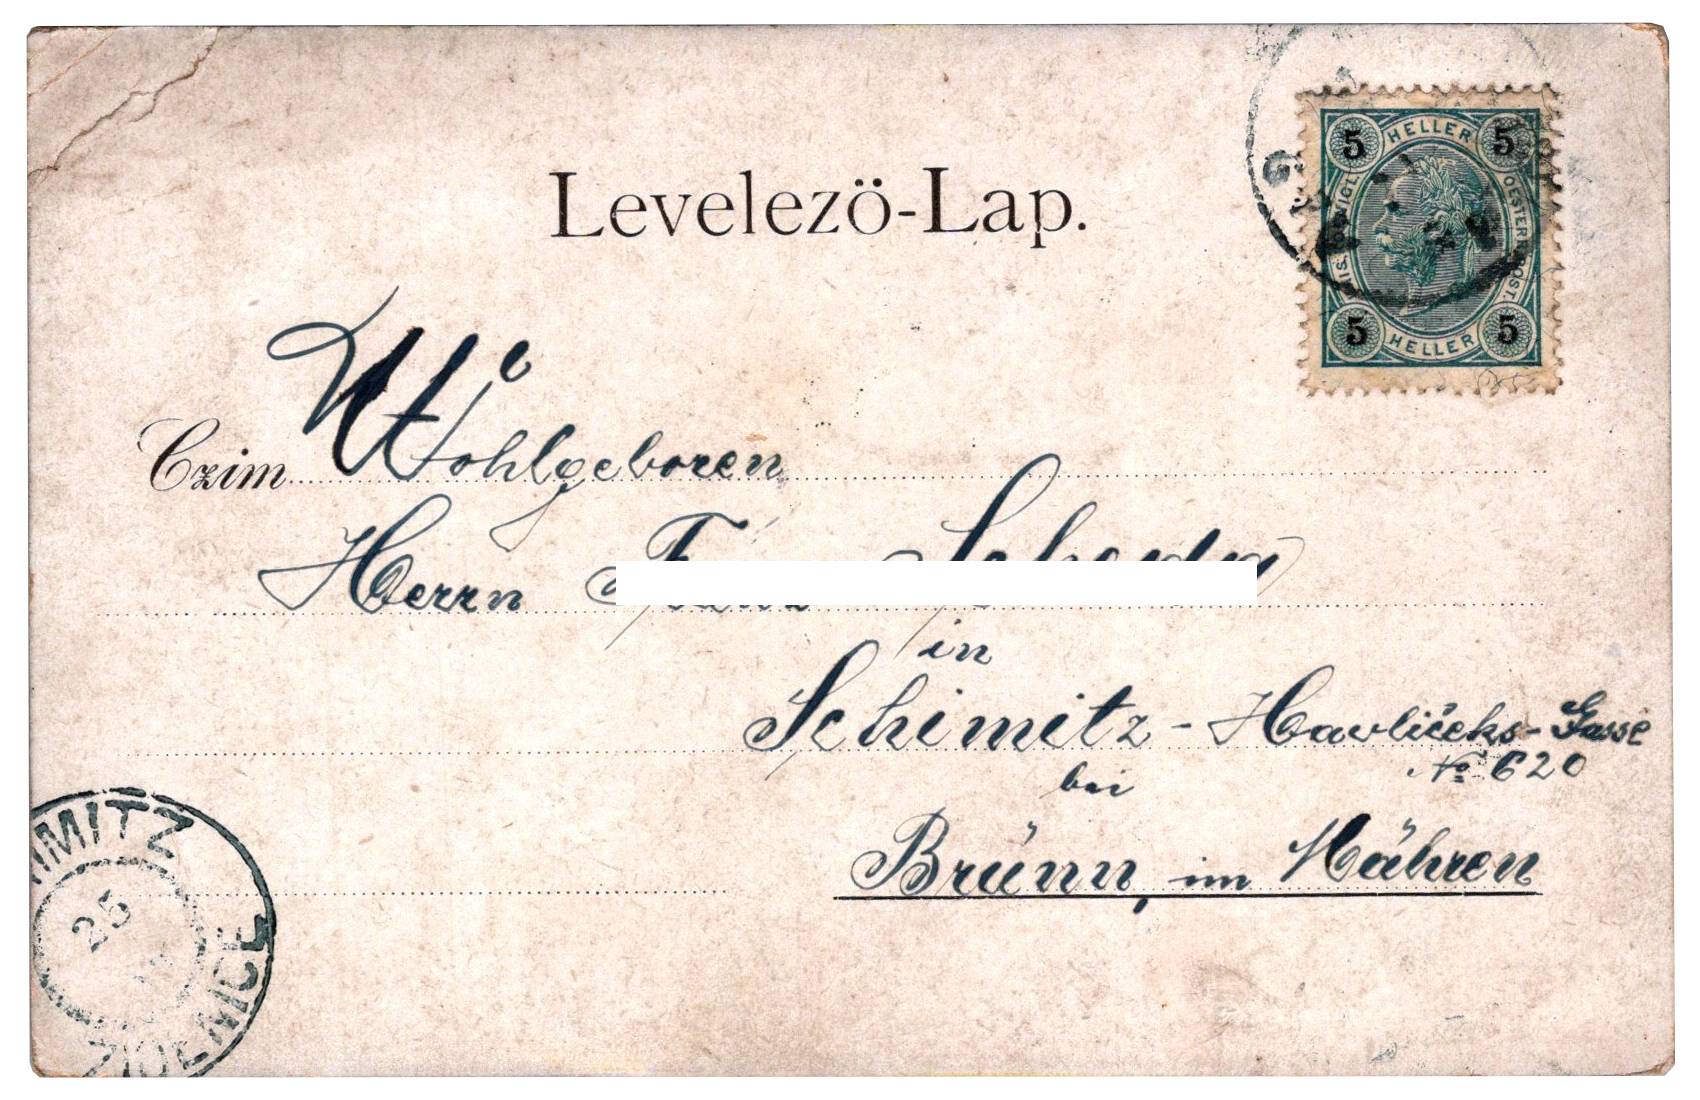 Levelezö-Lap.
HELLER
5 5
OESTERR.POST.
5 5
HELLER
Czim Wohlgeboren
Herrn
in
Schimitz - Havličeks-Gasse
No 620
bei
Brünn, im Mähren
25